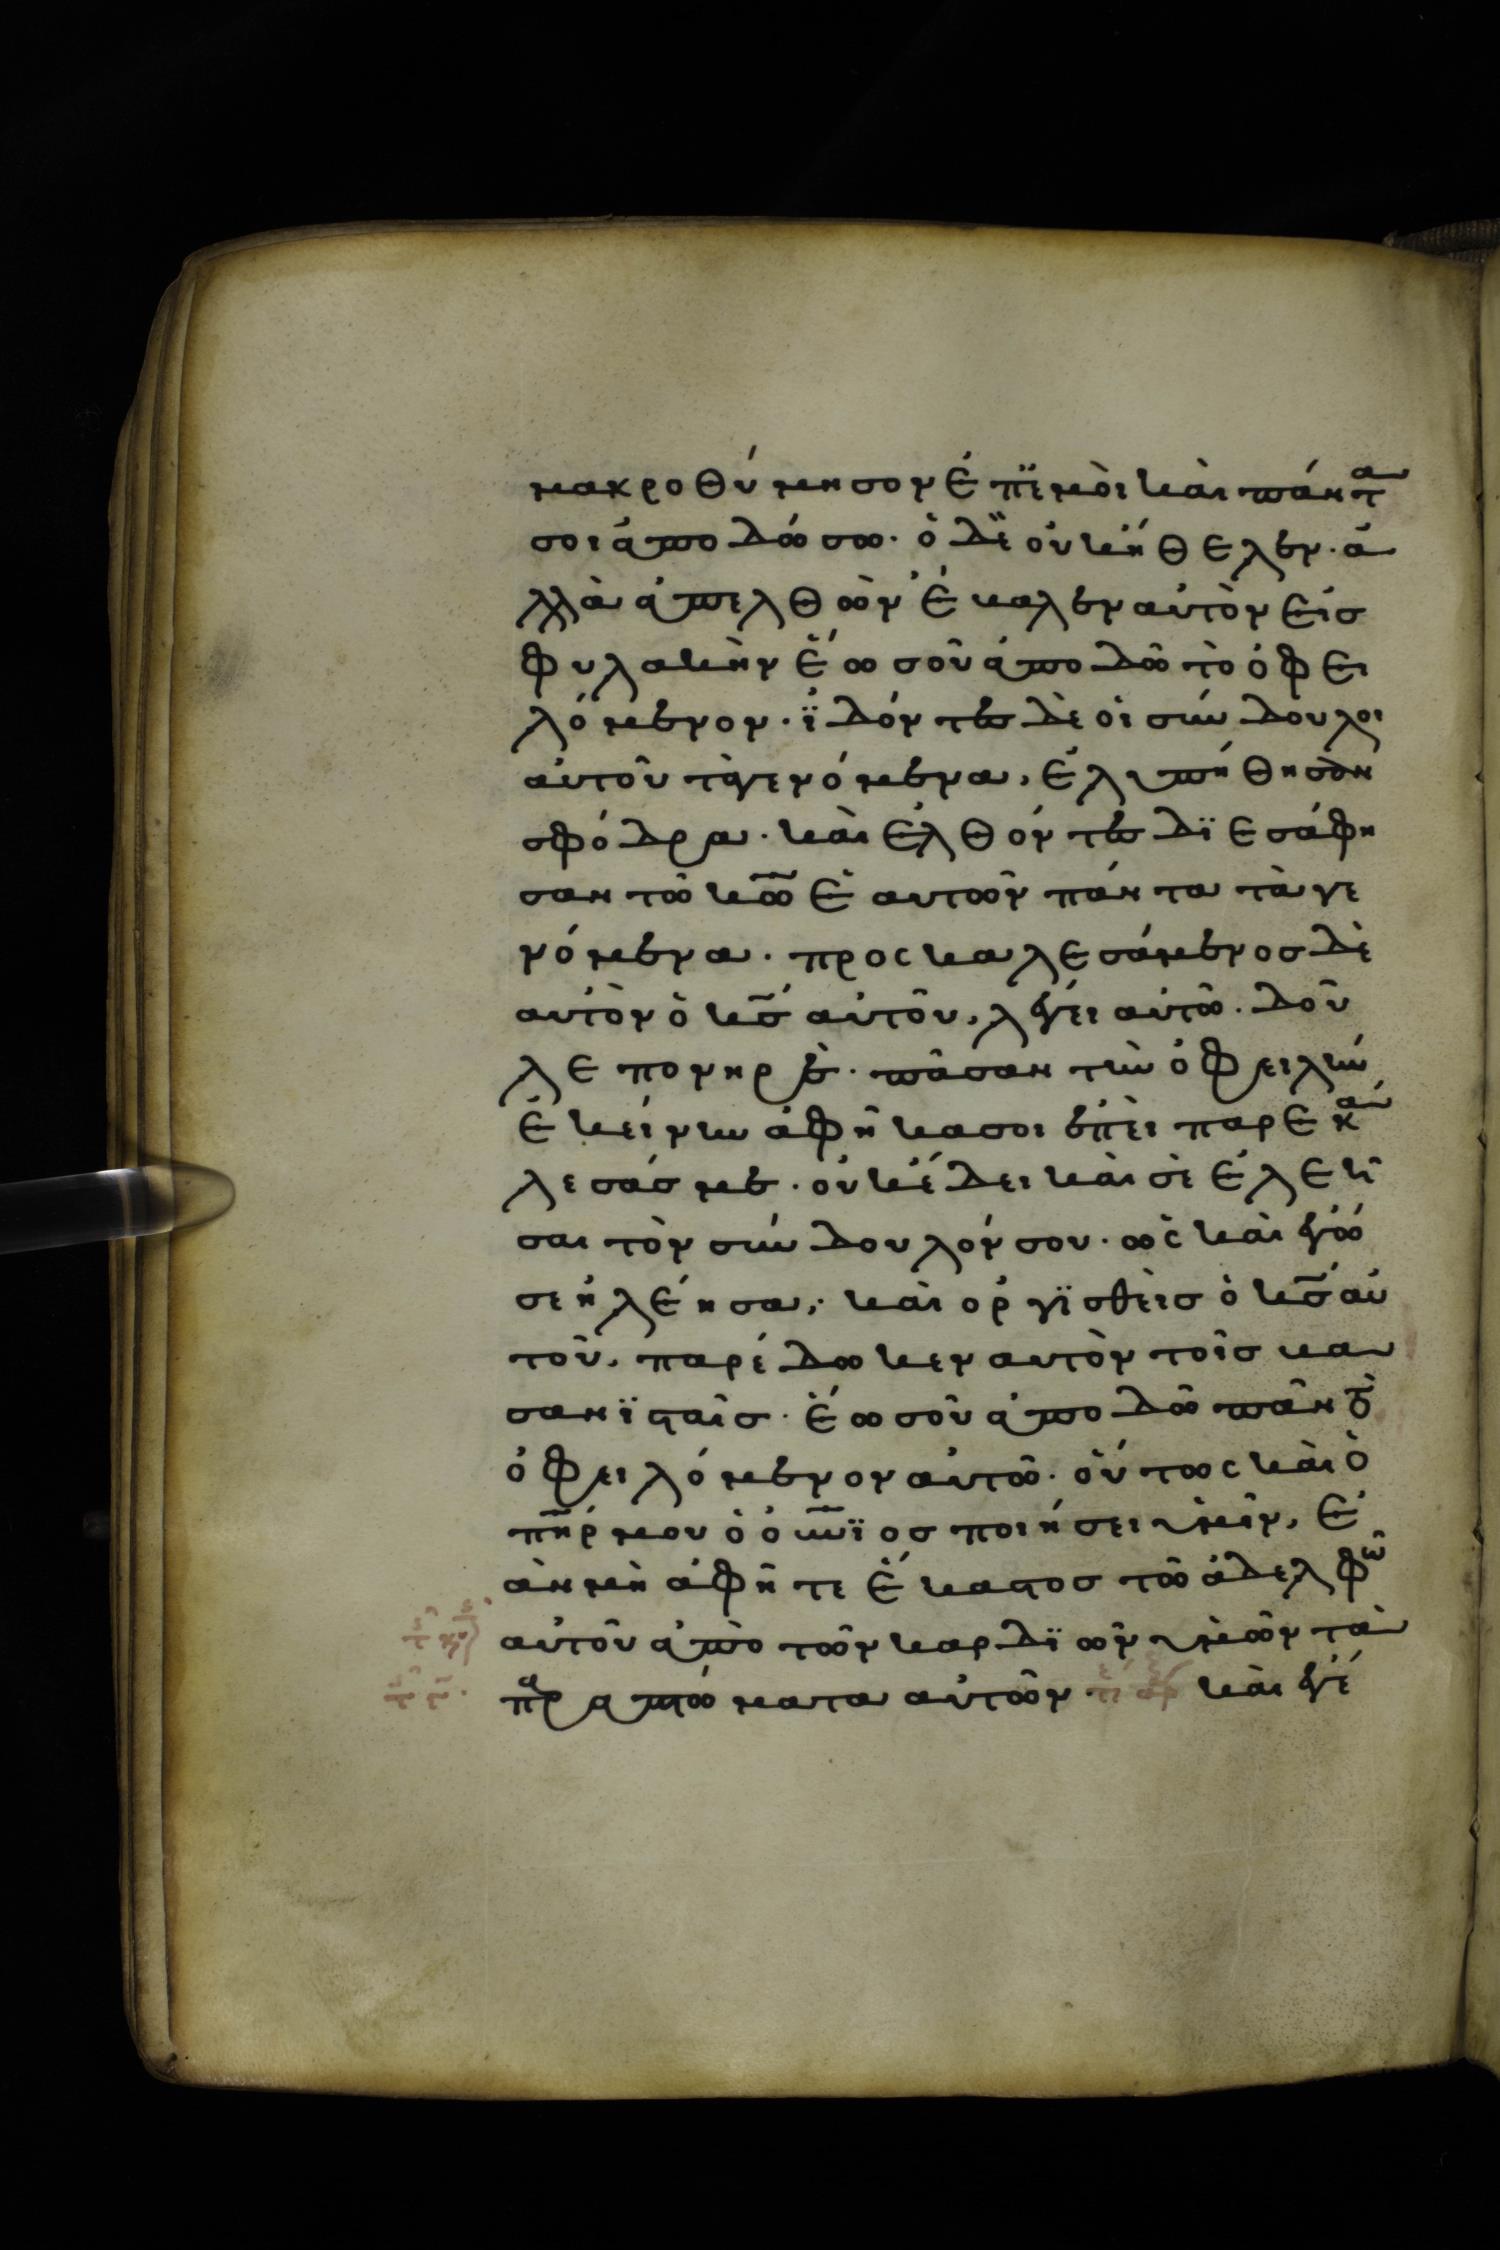 μακροθύμησον ἐπ ἐμοὶ καὶ πάντα
σοι ἀποδώσω· ὁ δὲ οὐκ ἤθελεν· ἀ
λλὰ ἀπελθὼν ἔκαλεν αὐτὸν εἰσ
φυλακὴν ἕωσοῦ ἀποδῶ τὸ ὀφει
λόμενον· ἰδόντες δὲ οἱ σύνδουλοι
αὐτοῦ τὰ γενόμενα, ἐλυπήθησαν
σφόδρα· καὶ ἐλθόντες διεσάφη
σαν τῶ κω ἑαυτῶν πάντα τὰ γε
νόμενα· προσκαλεσάμενοσ δὲ
αὐτὸν ὁ κσ αὐτοῦ, λέγει αὐτῶ· δοῦ
λε πονηρὲ· πᾶσαν τὴν ὀφειλὴν
ἐκείνην ἀφῆκα σοι ἐπεὶ παρεκά
λεσάσ με· οὐκ ἔδει καὶ σὲ ἐλεῆ
σαι τὸν σύνδουλόν σου· ὡς καὶ ἐγώ
σε ἠλέησα; καὶ ὀργισθεὶσ ὁ κσ αὐ
τοῦ, παρέδωκεν αὐτὸν τοῖσ κα
σανισταῖσ· ἕωσοῦ ἀποδῶ πᾶν τὸ
ὀφειλόμενον αὐτῶ· οὕτως καὶ ὁ
πηρ μου ὁ ουνιοσ ποιήσει ὑμῖν, ἐ
ὰν μὴ ἀφῆτε ἕκαστοσ τῶ ἀδελφῶ
αὐτοῦ ἀπὸ τῶν καρδιῶν ὑμῶν τὰ
παραπτώματα αὐτῶν· καὶ ἐγέ